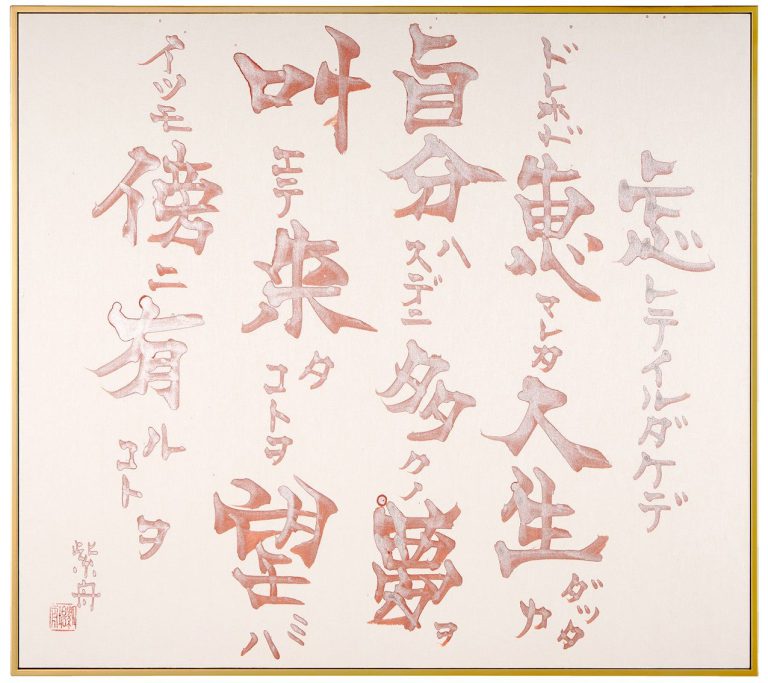 忘レテイルダケデ
ドレホド恵マレタ人生ダッタカ
自分ハスデニ多クノ夢ヲ
叶エテ来タコトヲ望ミハ
イツモ傍ニ有ルコトヲ
紫舟